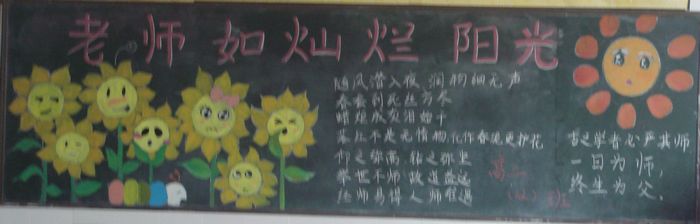 老师如灿烂阳光
随风潜入夜 润物细无声
春蚕到死丝方尽
蜡炬成灰泪始干
落红不是无情物,化作春泥更护花
仰之弥高 钻之弥坚
举世不师 故道益远
经师易得 人师难遇
高二
班
古之学者必严其师
一日为师,
终生为父。